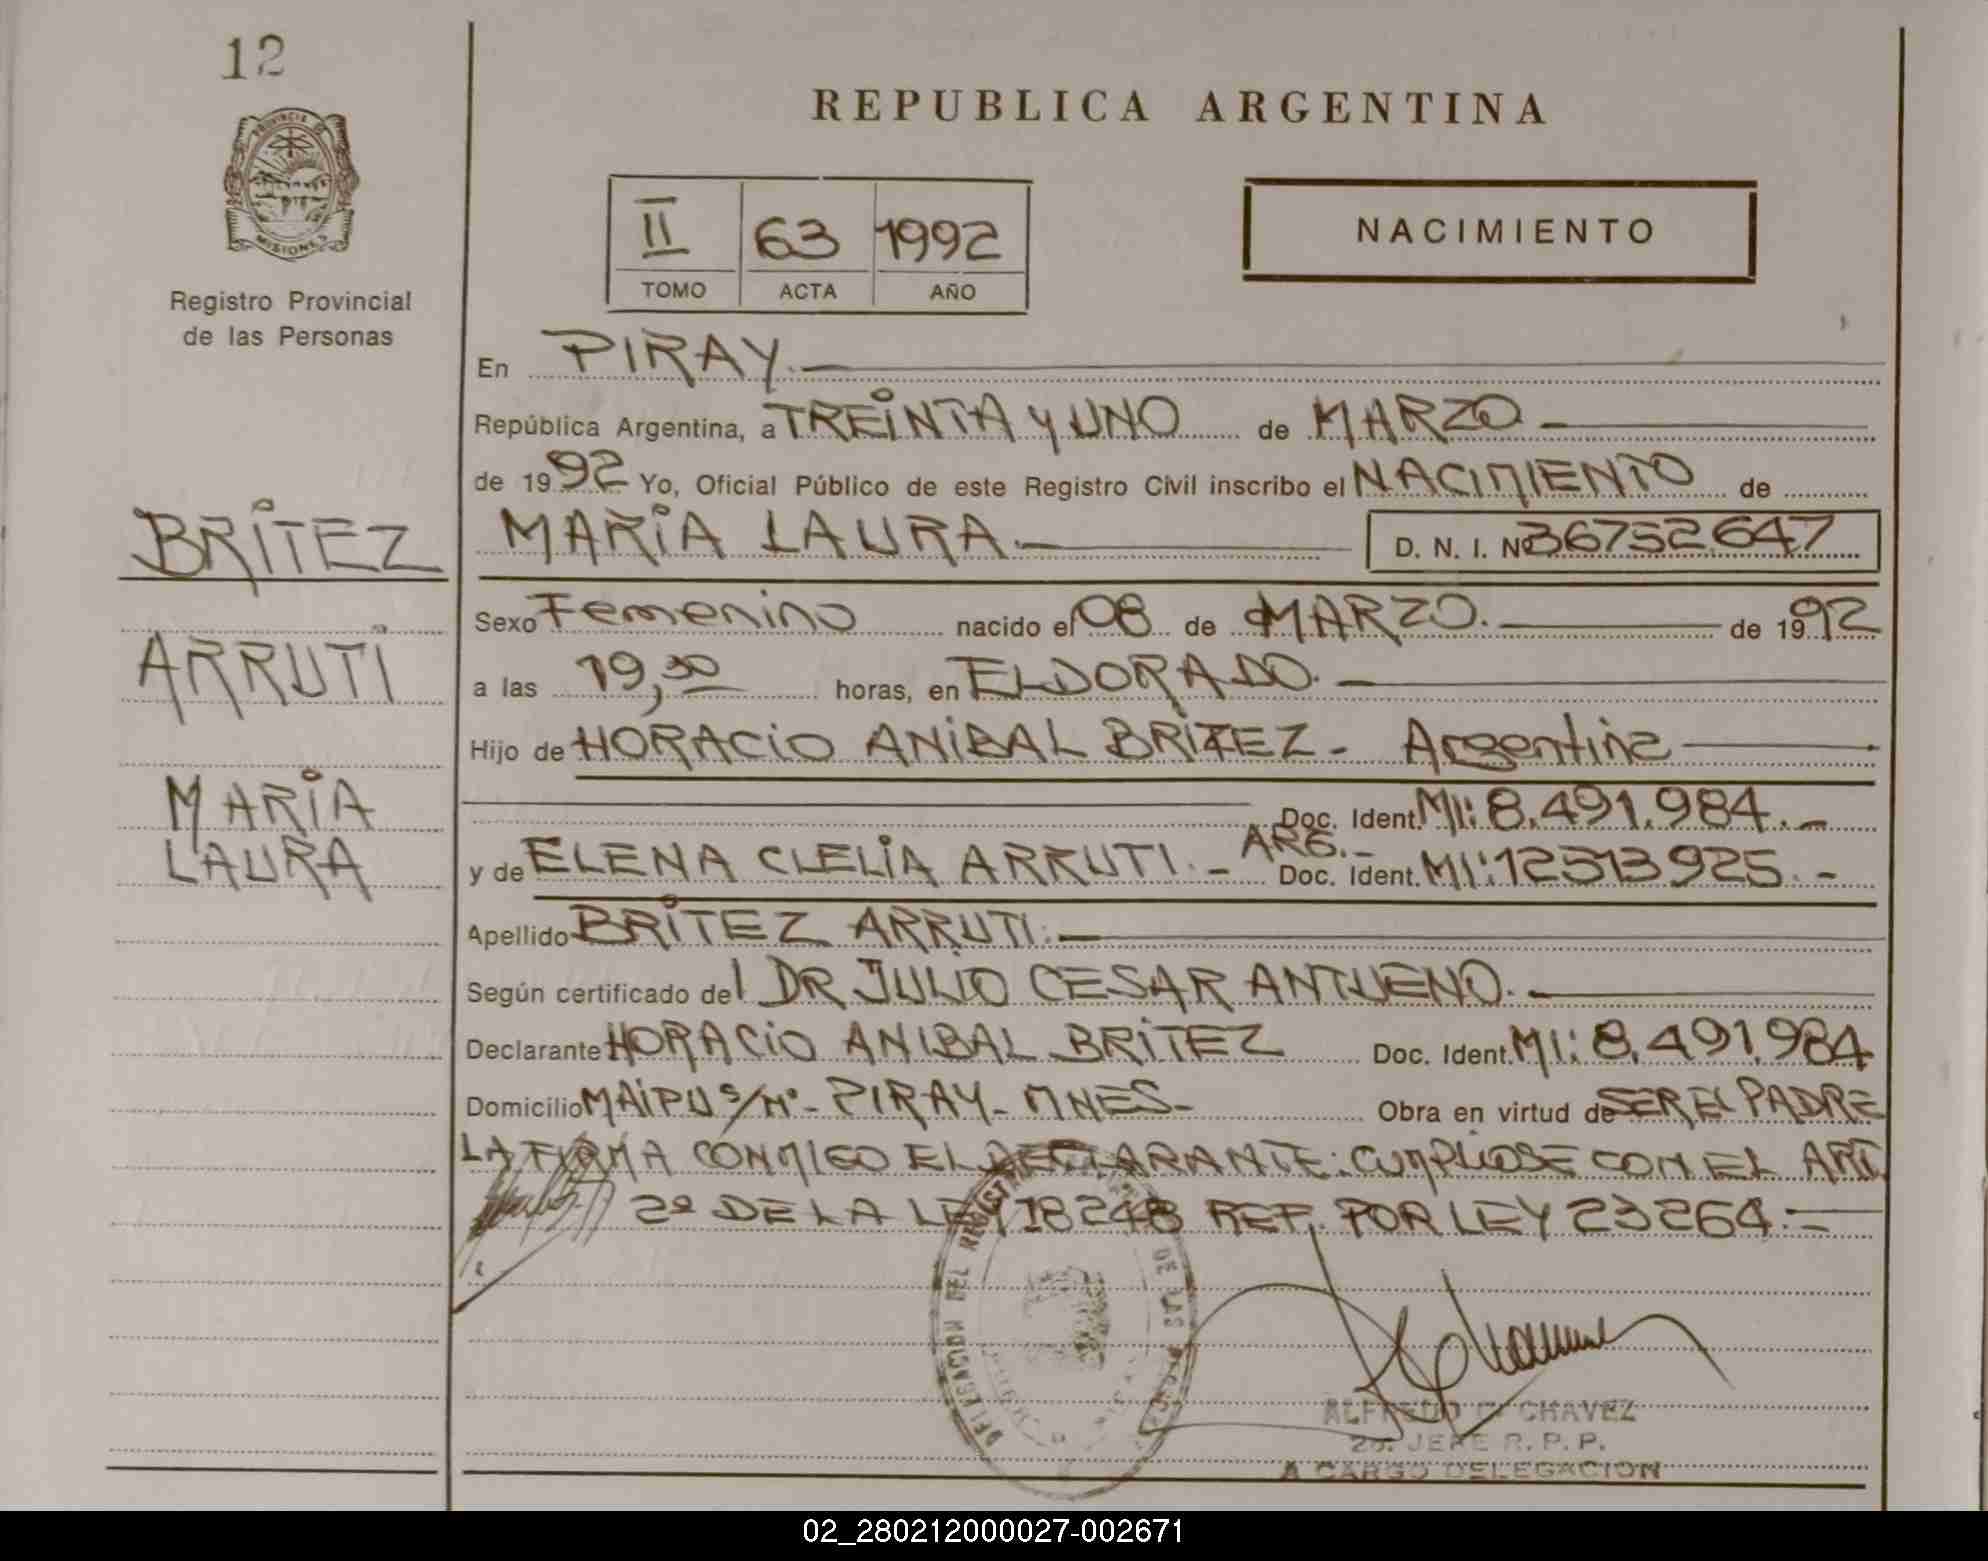 12
REPUBLICA ARGENTINA
PROVINCIA DE
MISIONES
Registro Provincial
de las Personas
II 63 1992
TOMO ACTA AÑO
NACIMIENTO
En PIRAY.
República Argentina, a TREINTA Y UNO de MARZO
de 1992 Yo, Oficial Público de este Registro Civil inscribo el NACIMIENTO de
MARIA LAURA. D. N. I. Nº 36752.647
BRITEZ
ARRUTI
MARIA
LAURA
Sexo Femenino nacido el 08 de MARZO. de 1992
a las 19,30 horas, en ELDORADO.
Hijo de HORACIO ANIBAL BRITEZ - Argentina
Doc. Ident. MI: 8.491.984.-
y de ELENA CLELIA ARRUTI.- ARG.- Doc. Ident. MI: 12313925.-
Apellido BRITEZ ARRUTI.-
Según certificado del DR JULIO CESAR ANTUENO.
Declarante HORACIO ANIBAL BRITEZ Doc. Ident. MI: 8.491.984
Domicilio MAIPU S/Nº- PIRAY- MNES- Obra en virtud de SER EL PADRE
LA FIRMA CONMIGO EL DECLARANTE: CUMPLIOSE CON EL ART.
2º DE LA LEY 18248 REF. POR LEY 23264.-
DELEGACION DEL REGISTRO DE LAS
ALFREDO CHAVEZ
2do. JEFE R. P. P.
A CARGO DELEGACION
02_280212000027-002671